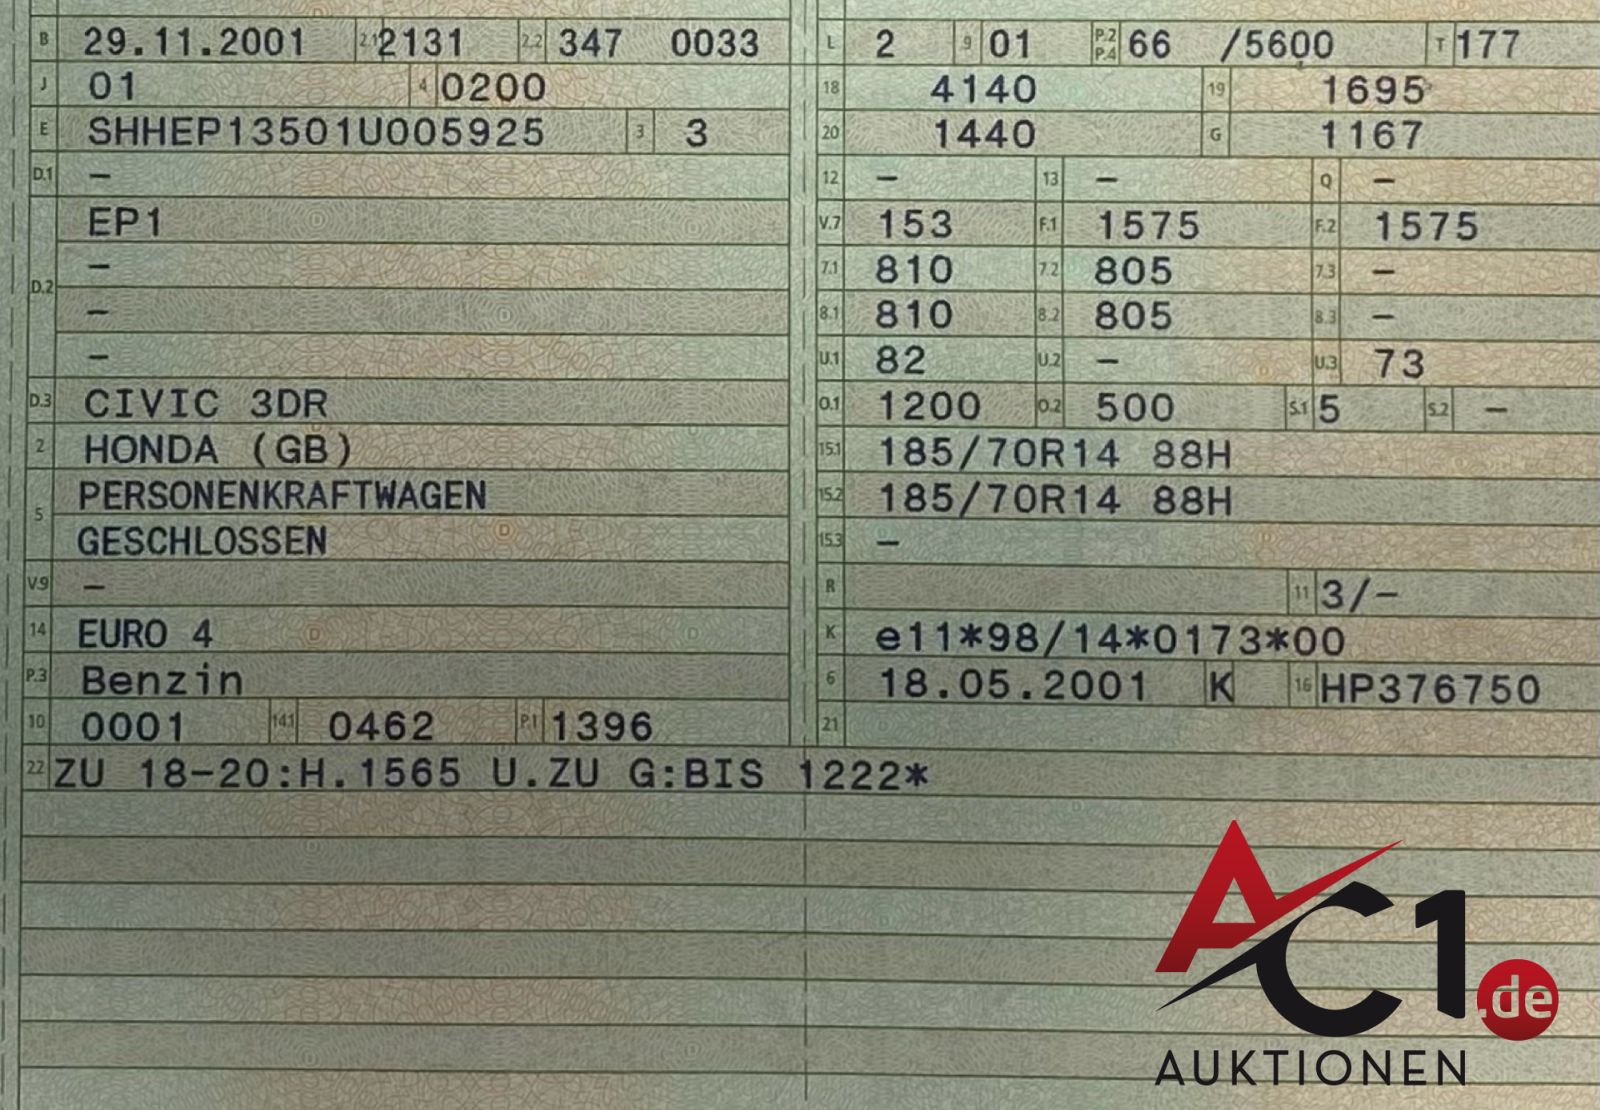 B 29.11.2001 2.1 2131 2.2 347 0033
J 01 4 0200
E SHHEP13501U005925 3 3
D.1 –
EP1
–
D.2
–
–
D.3 CIVIC 3DR
2 HONDA (GB)
PERSONENKRAFTWAGEN
5
GESCHLOSSEN
V.9 –
14 EURO 4
P.3 Benzin
10 0001 14.1 0462 P.1 1396
L 2 9 01 P.2 P.4 66 /5600 T 177
18 4140 19 1695
20 1440 G 1167
12 – 13 – Q –
V.7 153 F.1 1575 F.2 1575
7.1 810 7.2 805 7.3 –
8.1 810 8.2 805 8.3 –
U.1 82 U.2 – U.3 73
O.1 1200 O.2 500 S.1 5 S.2 –
15.1 185/70R14 88H
15.2 185/70R14 88H
15.3 –
R 11 3/–
K e11*98/14*0173*00
6 18.05.2001 K 16 HP376750
21
22 ZU 18–20:H.1565 U.ZU G:BIS 1222*
AC1.de
AUKTIONEN